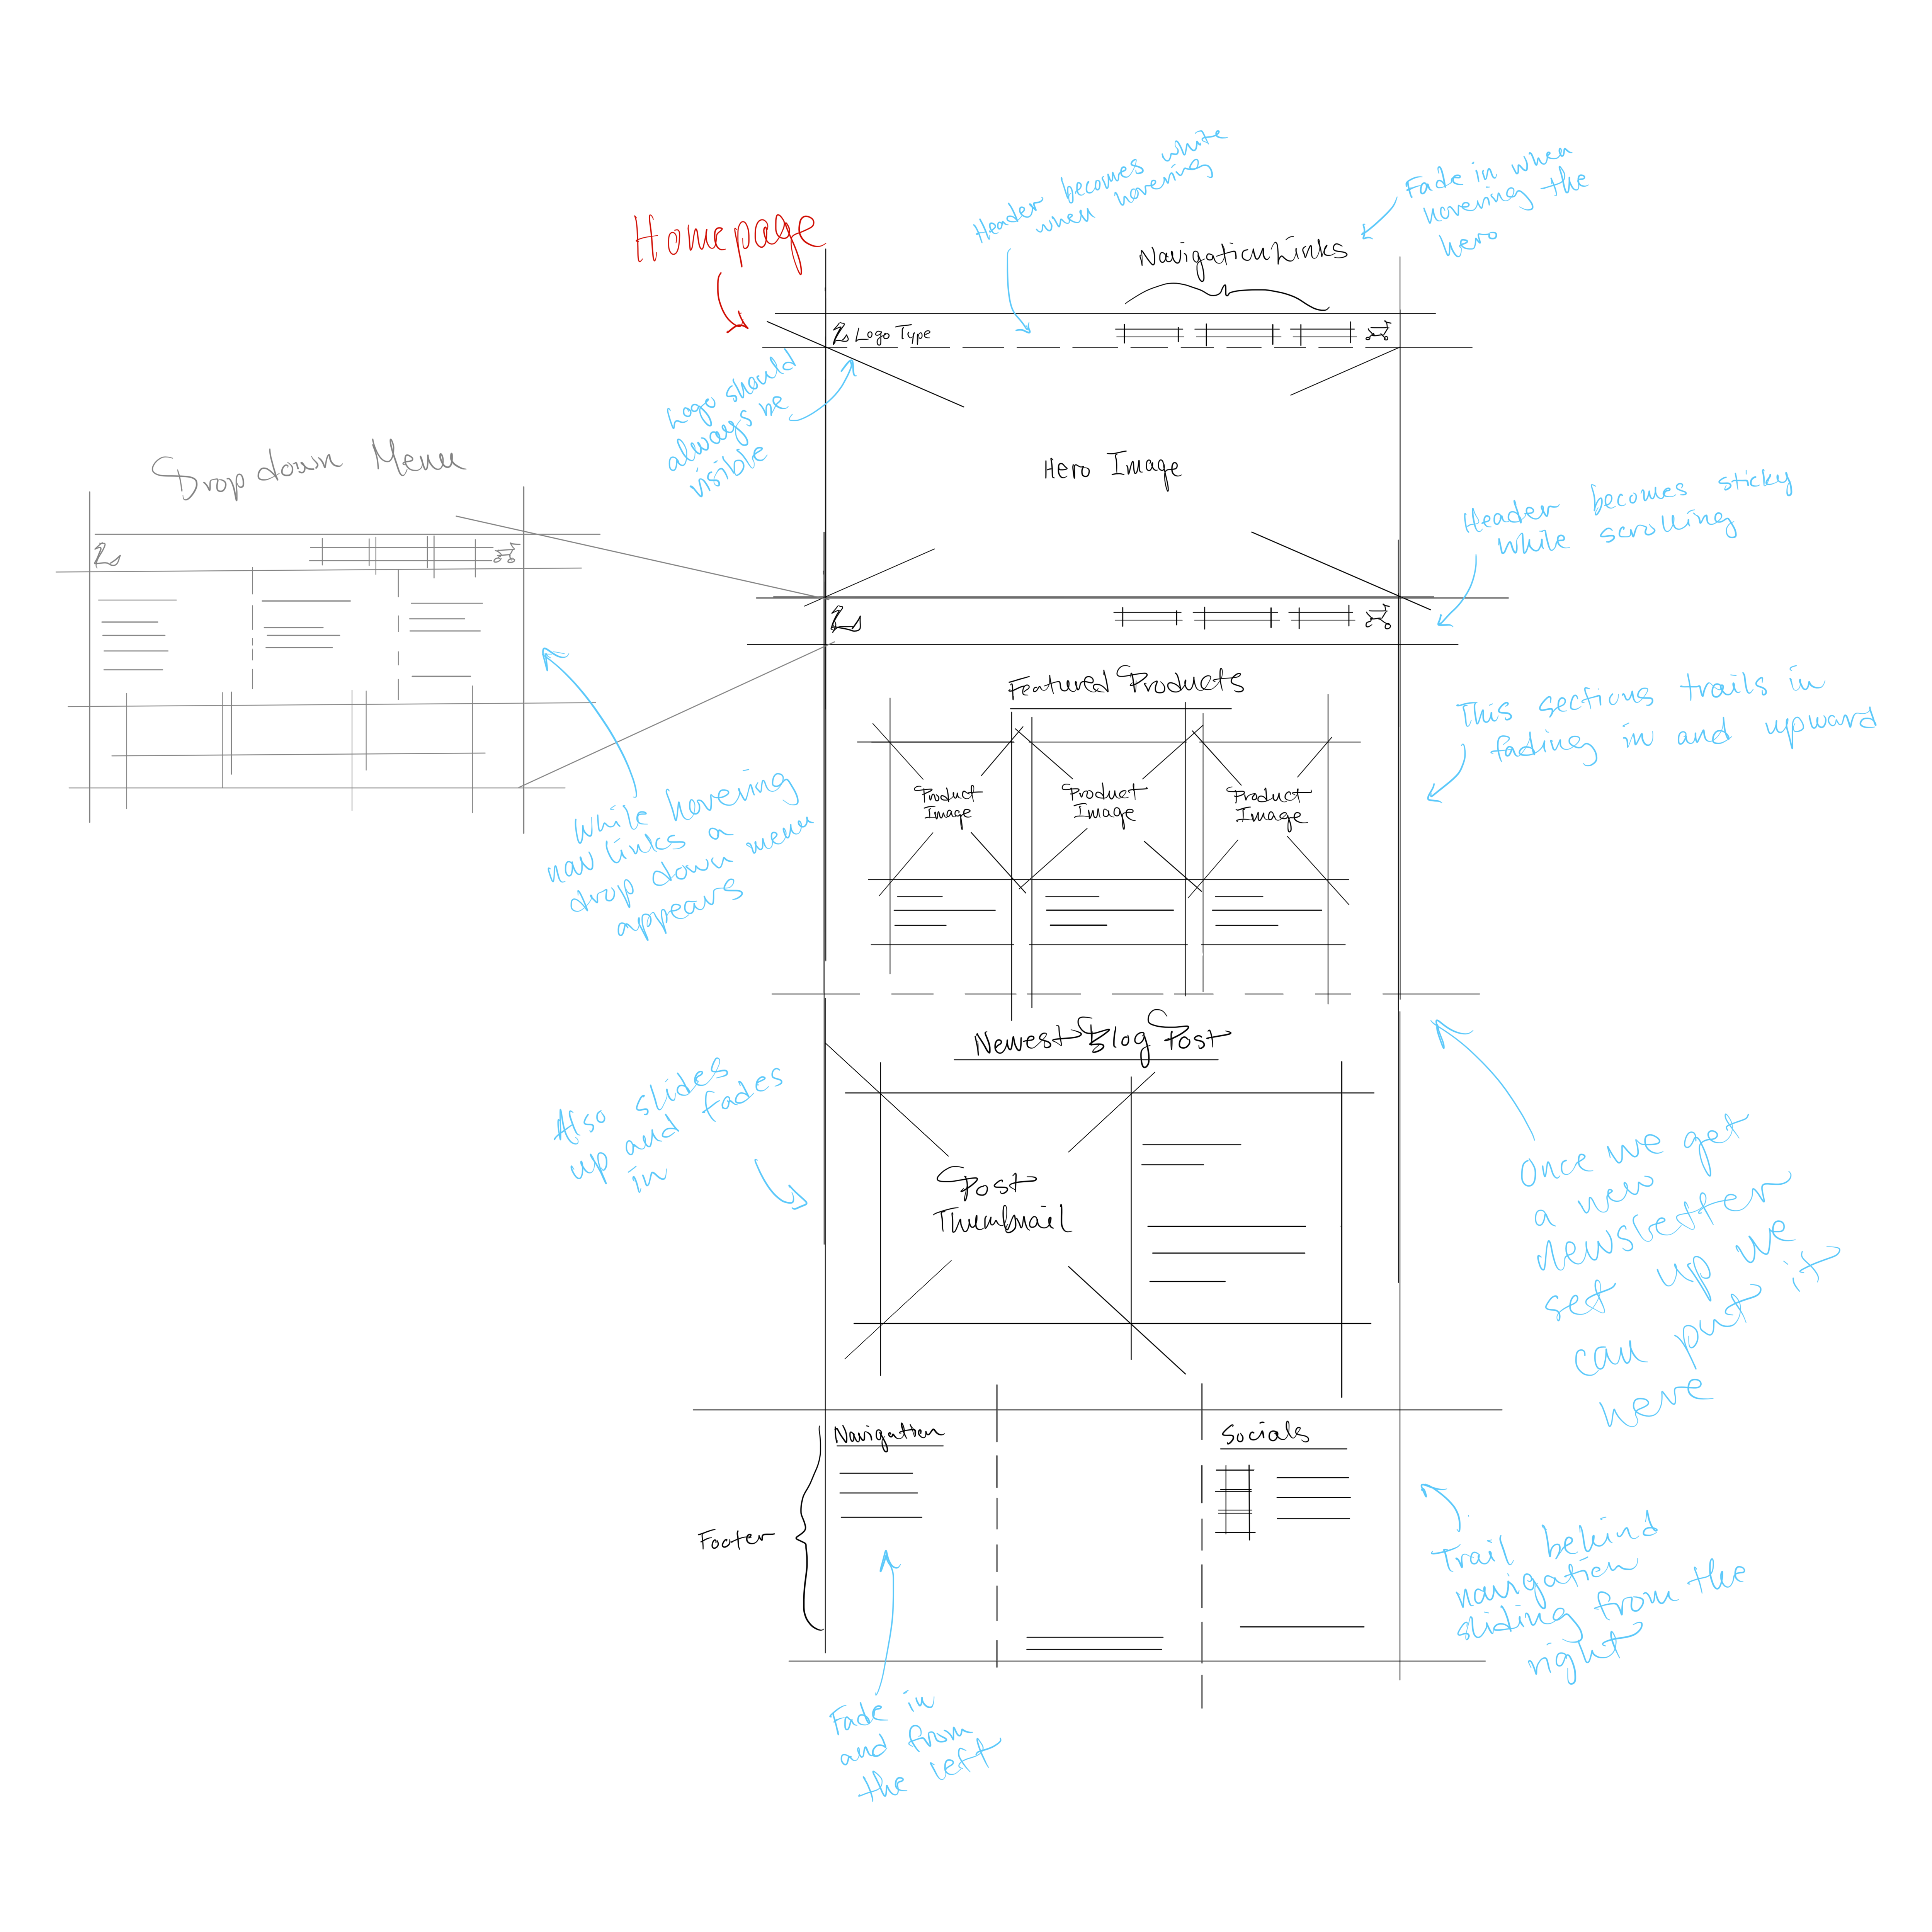 Homepage
Header becomes white
when hovering
Fade in when
hovering the
hero
Navigation Links
Logo Type
Logo should
always be
visible
Hero Image
Drop down Menu
Header becomes sticky
while scrolling
Featured Products
This sections trails in
fading in and upward
Product
Image
Product
Image
Product
Image
While hovering
nav links a
drop down menu
appears
Newest Blog Post
Also slides
up and fades
in
Post
Thumbnail
Once we get
a new
newsletter
set up we
can put it
here
Navigation
Socials
Footer
Trail behind
navigation
sliding from the
right
Fade in
and from
the left